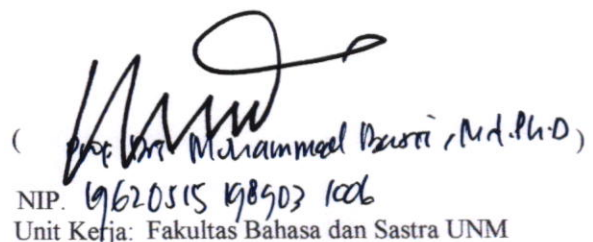 ( Prof. Drs. Muhammad Basri, M.A. Ph.D )
NIP. 19620515 198903 1006
Unit Kerja: Fakultas Bahasa dan Sastra UNM